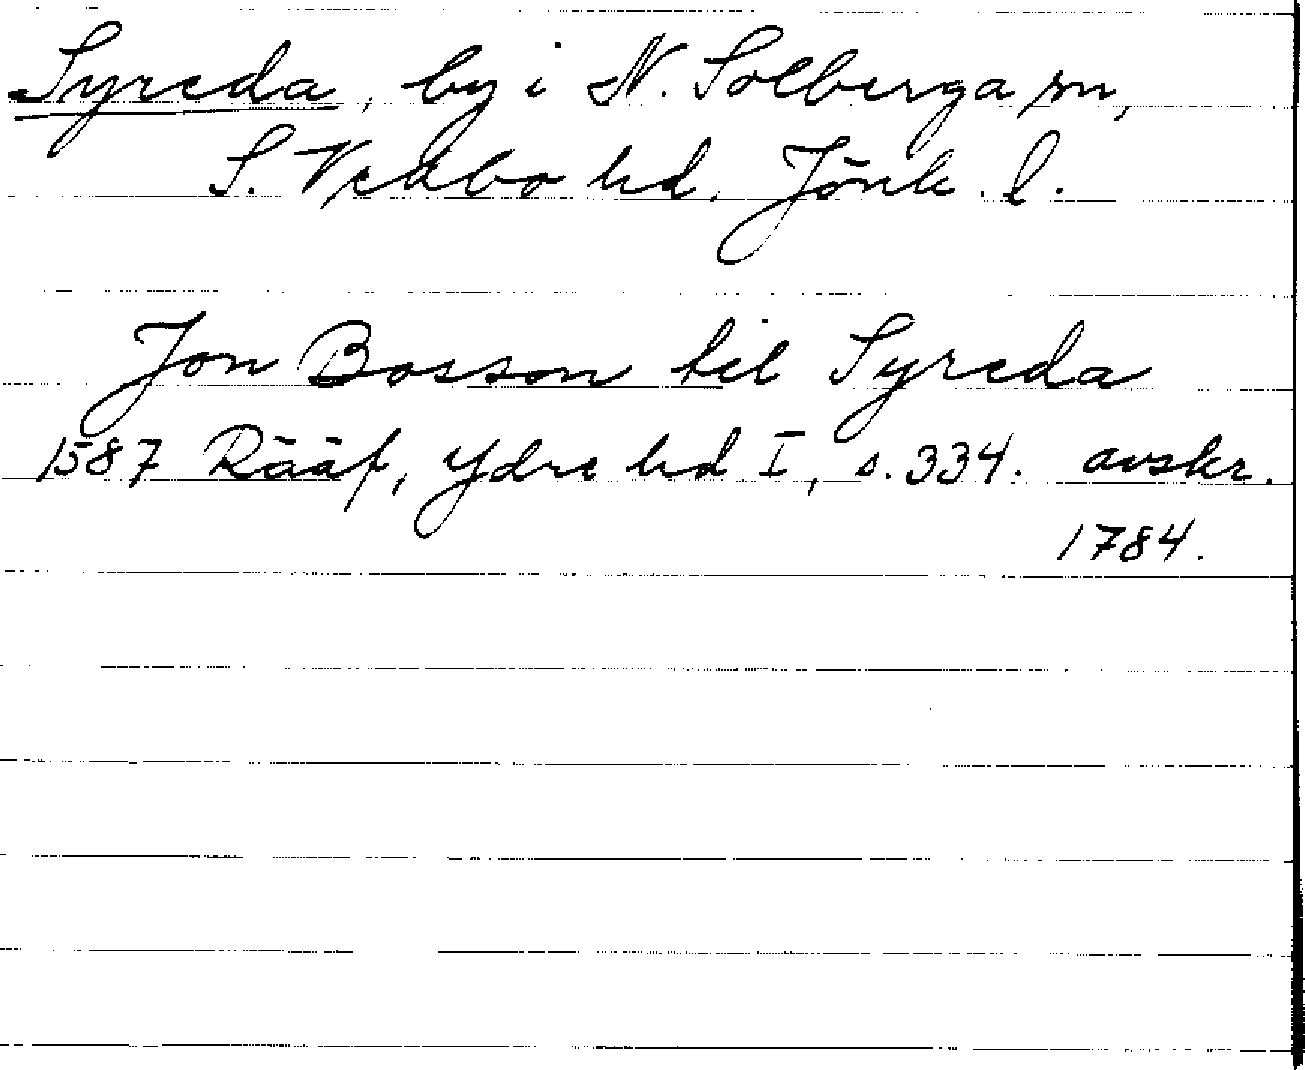 Syreda, by i N. Solberga sn,
S. Vedbo hd. Jönk. l.
Jon Bosson til Syreda
1587 Rääf, Ydre hd I, s. 334. avskr.
1784.